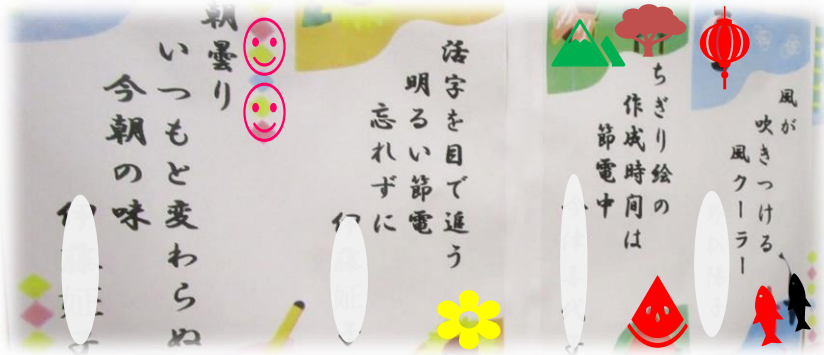 風が
吹きつける
風クーラー
ちぎり絵の
作成時間は
節電中
活字を目で追う
明るい節電
忘れずに
朝曇り
いつもと変わらぬ
今朝の味